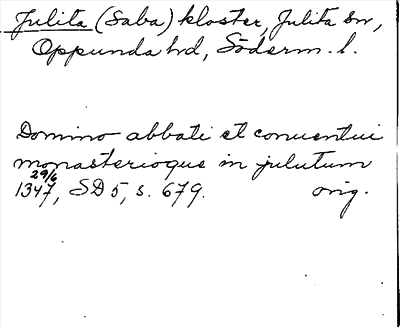 Julita (Saba) kloster, Julita sn,
Oppunda hd, Söderm. l.
Domino abbati et conuentui
monasterioque in julutum
29/6
1347, SD 5, s. 679. orig.